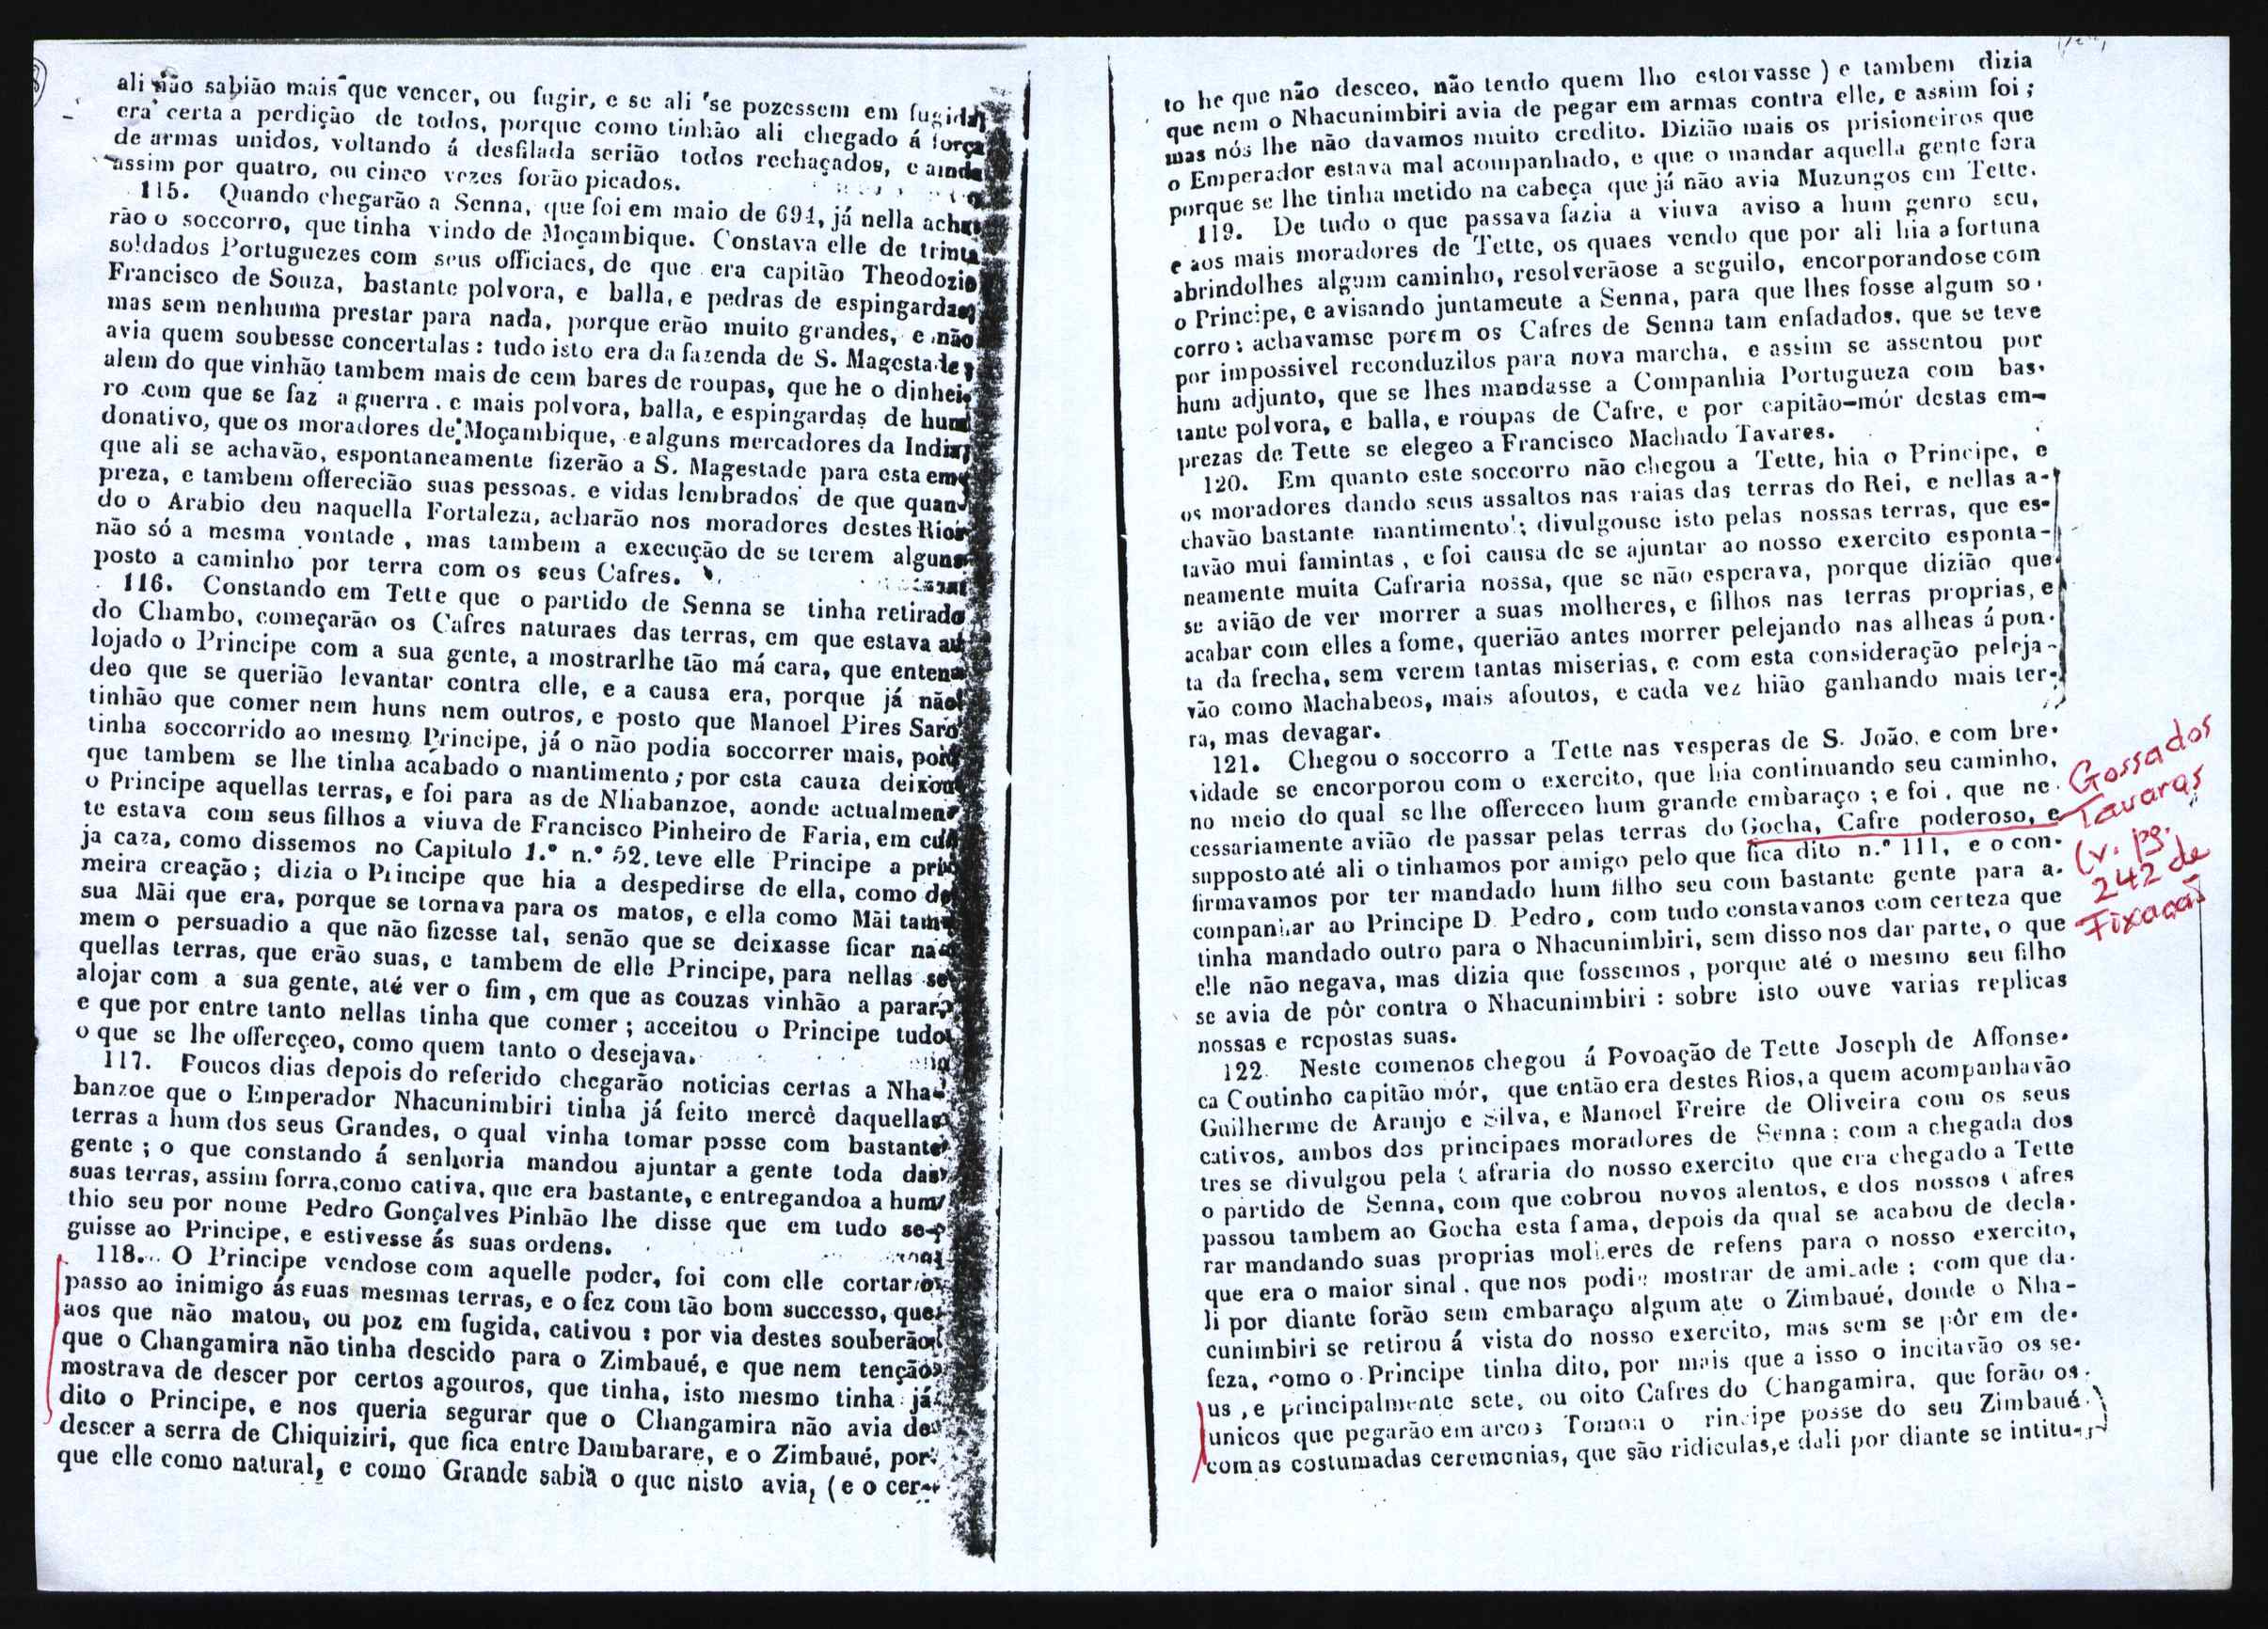 ali não sabião mais que vencer, ou fugir, e se ali se pozessem em fugida
era certa a perdição de todos, porque como tinhão ali chegado á força
de armas unidos, voltando á desfilada serião todos rechaçados, e ainda
assim por quatro, ou cinco vezes forão picados.
115. Quando chegarão a Senna, que foi em maio de 694, já nella acha-
rão o soccorro, que tinha vindo de Moçambique. Constava elle de trinta
soldados Portuguezes com seus officiaes, de que era capitão Theodozio
Francisco de Souza, bastante polvora, e balla, e pedras de espingardas,
mas sem nenhuma prestar para nada, porque erão muito grandes, e não
avia quem soubesse concertalas: tudo isto era da fazenda de S. Magestade,
alem do que vinhão tambem mais de cem bares de roupas, que he o dinhei-
ro com que se faz a guerra, e mais polvora, balla, e espingardas de hum
donativo, que os moradores de Moçambique, e alguns mercadores da India,
que ali se achavão, espontaneamente fizerão a S. Magestade para esta em-
preza, e tambem offerecião suas pessoas, e vidas lembrados de que quan-
do o Arabio deu naquella Fortaleza, acharão nos moradores destes Rios
não só a mesma vontade, mas tambem a execução de se terem alguns
posto a caminho por terra com os seus Cafres.
116. Constando em Tette que o partido de Senna se tinha retirado
do Chambo, começarão os Cafres naturaes das terras, em que estava a-
lojado o Principe com a sua gente, a mostrarlhe tão má cara, que enten-
deo que se querião levantar contra elle, e a causa era, porque já não
tinhão que comer nem huns nem outros, e posto que Manoel Pires Saro
tinha soccorrido ao mesmo Principe, já o não podia soccorrer mais, por-
que tambem se lhe tinha acabado o mantimento; por esta cauza deixou
o Principe aquellas terras, e foi para as de Nhabanzoe, aonde actualmen-
te estava com seus filhos a viuva de Francisco Pinheiro de Faria, em cu-
ja caza, como dissemos no Capitulo 1.º n.º 52, teve elle Principe a pri-
meira creação; dizia o Principe que hia a despedirse de ella, como de
sua Mãi que era, porque se tornava para os matos, e ella como Mãi tam-
mem o persuadio a que não fizesse tal, senão que se deixasse ficar na-
quellas terras, que erão suas, e tambem de elle Principe, para nellas se
alojar com a sua gente, até ver o fim, em que as couzas vinhão a parar,
e que por entre tanto nellas tinha que comer; acceitou o Principe tudo
o que se lhe offereçeo, como quem tanto o desejava.
117. Poucos dias depois do referido chegarão noticias certas a Nha-
banzoe que o Emperador Nhacunimbiri tinha já feito mercê daquellas
terras a hum dos seus Grandes, o qual vinha tomar posse com bastante
gente; o que constando á senhoria mandou ajuntar a gente toda das
suas terras, assim forra, como cativa, que era bastante, e entregandoa a hum
thio seu por nome Pedro Gonçalves Pinhão lhe disse que em tudo se-
guisse ao Principe, e estivesse ás suas ordens.
118. O Principe vendose com aquelle poder, foi com elle cortar o
passo ao inimigo ás suas mesmas terras, e o fez com tão bom successo, que
aos que não matou, ou poz em fugida, cativou: por via destes souberão
que o Changamira não tinha descido para o Zimbaué, e que nem tenção
mostrava de descer por certos agouros, que tinha, isto mesmo tinha já
dito o Principe, e nos queria segurar que o Changamira não avia de
descer a serra de Chiquiziri, que fica entre Dambarare, e o Zimbaué, por-
que elle como natural, e como Grande sabia o que nisto avia, (e o cer-
to he que não desceo, não tendo quem lho estorvasse) e tambem dizia
que nem o Nhacunimbiri avia de pegar em armas contra elle, e assim foi;
mas nós lhe não davamos muito credito. Dizião mais os prisioneiros que
o Emperador estava mal acompanhado, e que o mandar aquella gente fora
porque se lhe tinha metido na cabeça que já não avia Muzungos em Tette.
119. De tudo o que passava fazia a viuva aviso a hum genro seu,
e aos mais moradores de Tette, os quaes vendo que por ali hia a fortuna
abrindolhes algum caminho, resolverãose a seguilo, encorporandose com
o Principe, e avisando juntamente a Senna, para que lhes fosse algum so-
corro: achavamse porem os Cafres de Senna tam enfadados, que se teve
por impossivel reconduzilos para nova marcha, e assim se assentou por
hum adjunto, que se lhes mandasse a Companhia Portugueza com bas-
tante polvora, e balla, e roupas de Cafre, e por capitão-mór destas em-
prezas de Tette se elegeo a Francisco Machado Tavares.
120. Em quanto este soccorro não chegou a Tette, hia o Principe, e
os moradores dando seus assaltos nas raias das terras do Rei, e nellas a-
chavão bastante mantimento; divulgouse isto pelas nossas terras, que es-
tavão mui famintas, e foi causa de se ajuntar ao nosso exercito esponta-
neamente muita Cafraria nossa, que se não esperava, porque dizião que
se avião de ver morrer a suas molheres, e filhos nas terras proprias, e
acabar com elles a fome, querião antes morrer pelejando nas alheas á pon-
ta da frecha, sem verem tantas miserias, e com esta consideração peleja-
vão como Machabeos, mais afoutos, e cada vez hião ganhando mais ter-
ra, mas devagar.
121. Chegou o soccorro a Tette nas vesperas de S. João, e com bre-
vidade se encorporou com o exercito, que hia continuando seu caminho,
no meio do qual se lhe offereceo hum grande embaraço; e foi, que ne-
cessariamente avião de passar pelas terras do Gocha, Cafre poderoso, e
supposto até ali o tinhamos por amigo pelo que fica dito n.º 111, e o con-
firmavamos por ter mandado hum filho seu com bastante gente para a-
companhar ao Principe D. Pedro, com tudo constavanos com certeza que
tinha mandado outro para o Nhacunimbiri, sem disso nos dar parte, o que
elle não negava, mas dizia que fossemos, porque até o mesmo seu filho
se avia de pôr contra o Nhacunimbiri: sobre isto ouve varias replicas
nossas e repostas suas.
122. Neste comenos chegou á Povoação de Tette Joseph de Affonse-
ca Coutinho capitão mór, que então era destes Rios, a quem acompanhavão
Guilherme de Araujo e Silva, e Manoel Freire de Oliveira com os seus
cativos, ambos dos principaes moradores de Senna: com a chegada dos
tres se divulgou pela Cafraria do nosso exercito que era chegado a Tette
o partido de Senna, com que cobrou novos alentos, e dos nossos Cafres
passou tambem ao Gocha esta fama, depois da qual se acabou de decla-
rar mandando suas proprias molheres de refens para o nosso exercito,
que era o maior sinal, que nos podia mostrar de amizade; com que da-
li por diante forão sem embaraço algum ate o Zimbaué, donde o Nha-
cunimbiri se retirou á vista do nosso exercito, mas sem se pôr em de-
feza, como o Principe tinha dito, por mais que a isso o incitavão os se-
us, e principalmente sete, ou oito Cafres do Changamira, que forão os
unicos que pegarão em arcos Tomou o rincipe posse do seu Zimbaué
com as costumadas ceremonias, que são ridiculas, e dali por diante se intitu-
Gossados
Tavaras
(v. pg.
242 de
Fixação